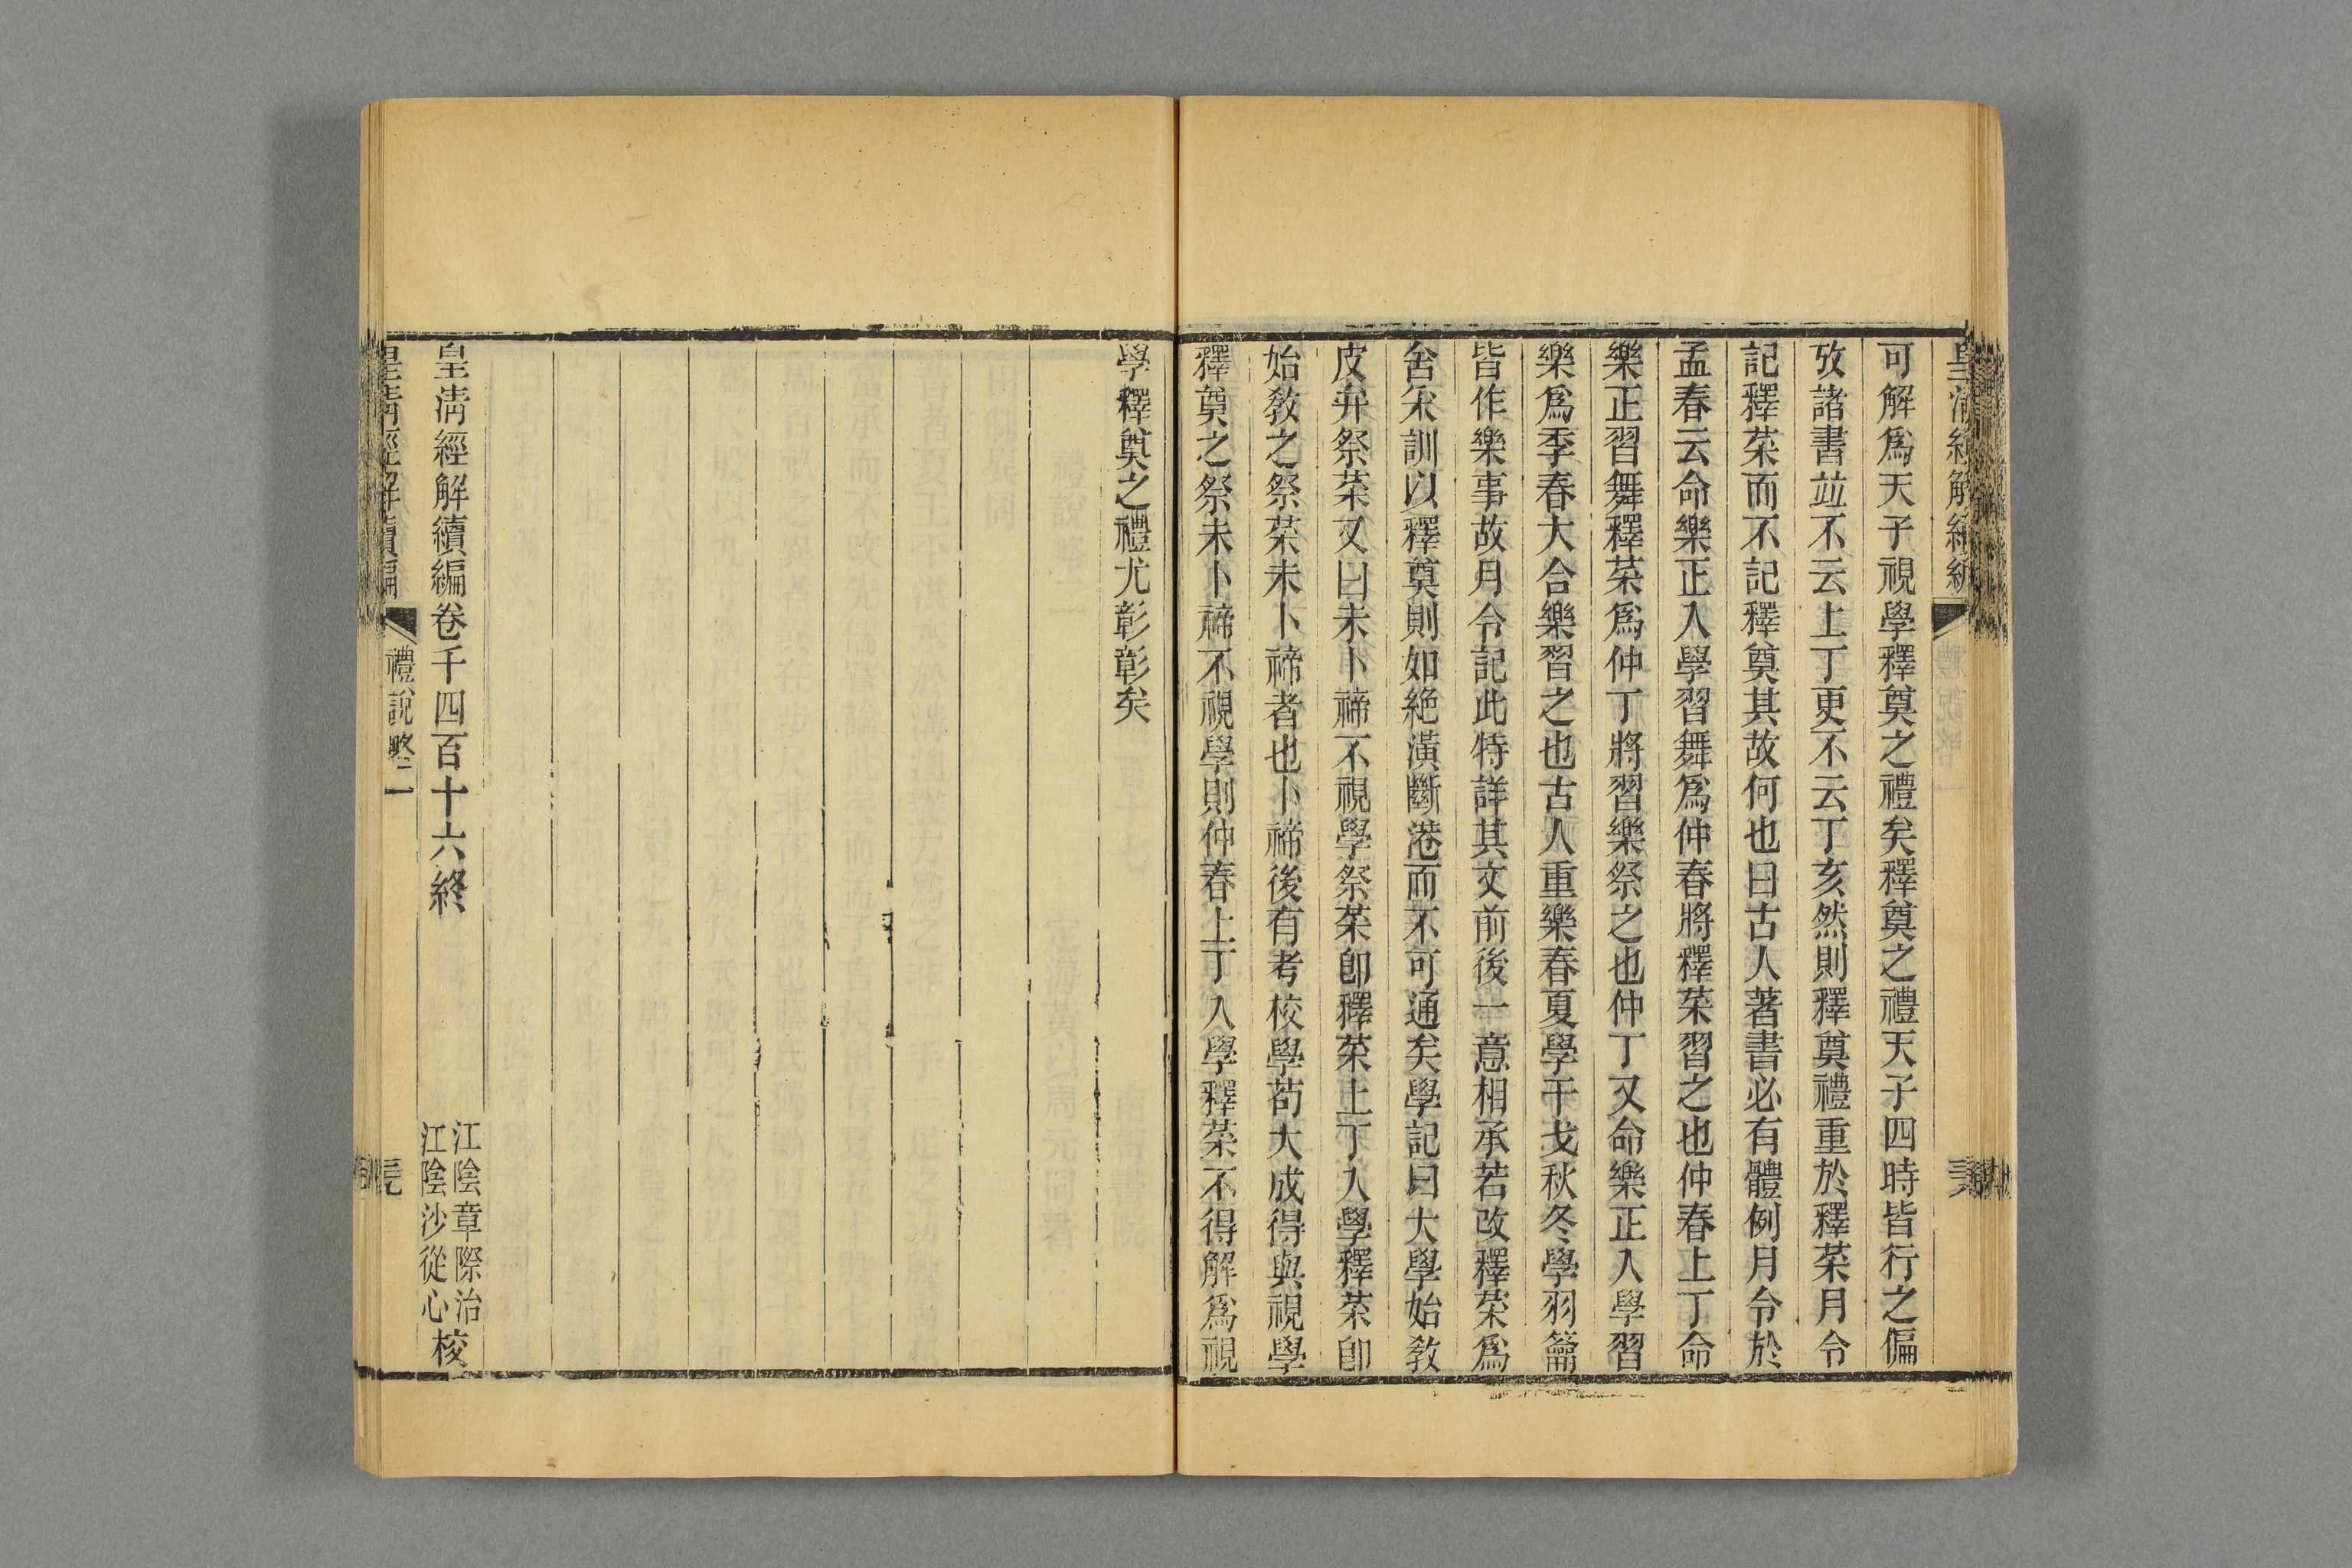 可解爲天子視學釋奠之禮矣釋奠之禮天子四時皆行之偏
攷諸書竝不云上丁更不云丁亥然則釋奠禮重於釋菜月令
記釋菜而不記釋奠其故何也曰古人著書必有體例月令於
孟春云命樂正入學習舞爲仲春將釋菜習之也仲春上丁命
樂正習舞釋菜爲仲丁將習樂祭之也仲丁又命樂正入學習
樂爲季春大合樂習之也古人重樂春夏學干戈秋冬學羽籥
皆作樂事故月令記此特詳其文前後一意相承若改釋菜爲
舍釆訓以釋奠則如絶潢斷港而不可通矣學記曰大學始敎
皮弁祭菜又曰未卜禘不視學祭菜卽釋菜上丁入學釋菜卽
始敎之祭菜未卜禘者也卜禘後有考校學苟大成得與視學
釋奠之祭未卜禘不視學則仲春上丁入學釋菜不得解爲視
學釋奠之禮尤彰彰矣
皇淸經解續編卷千四百十六終
江陰章際治
江陰沙從心校
皇淸經解續編
禮說略二